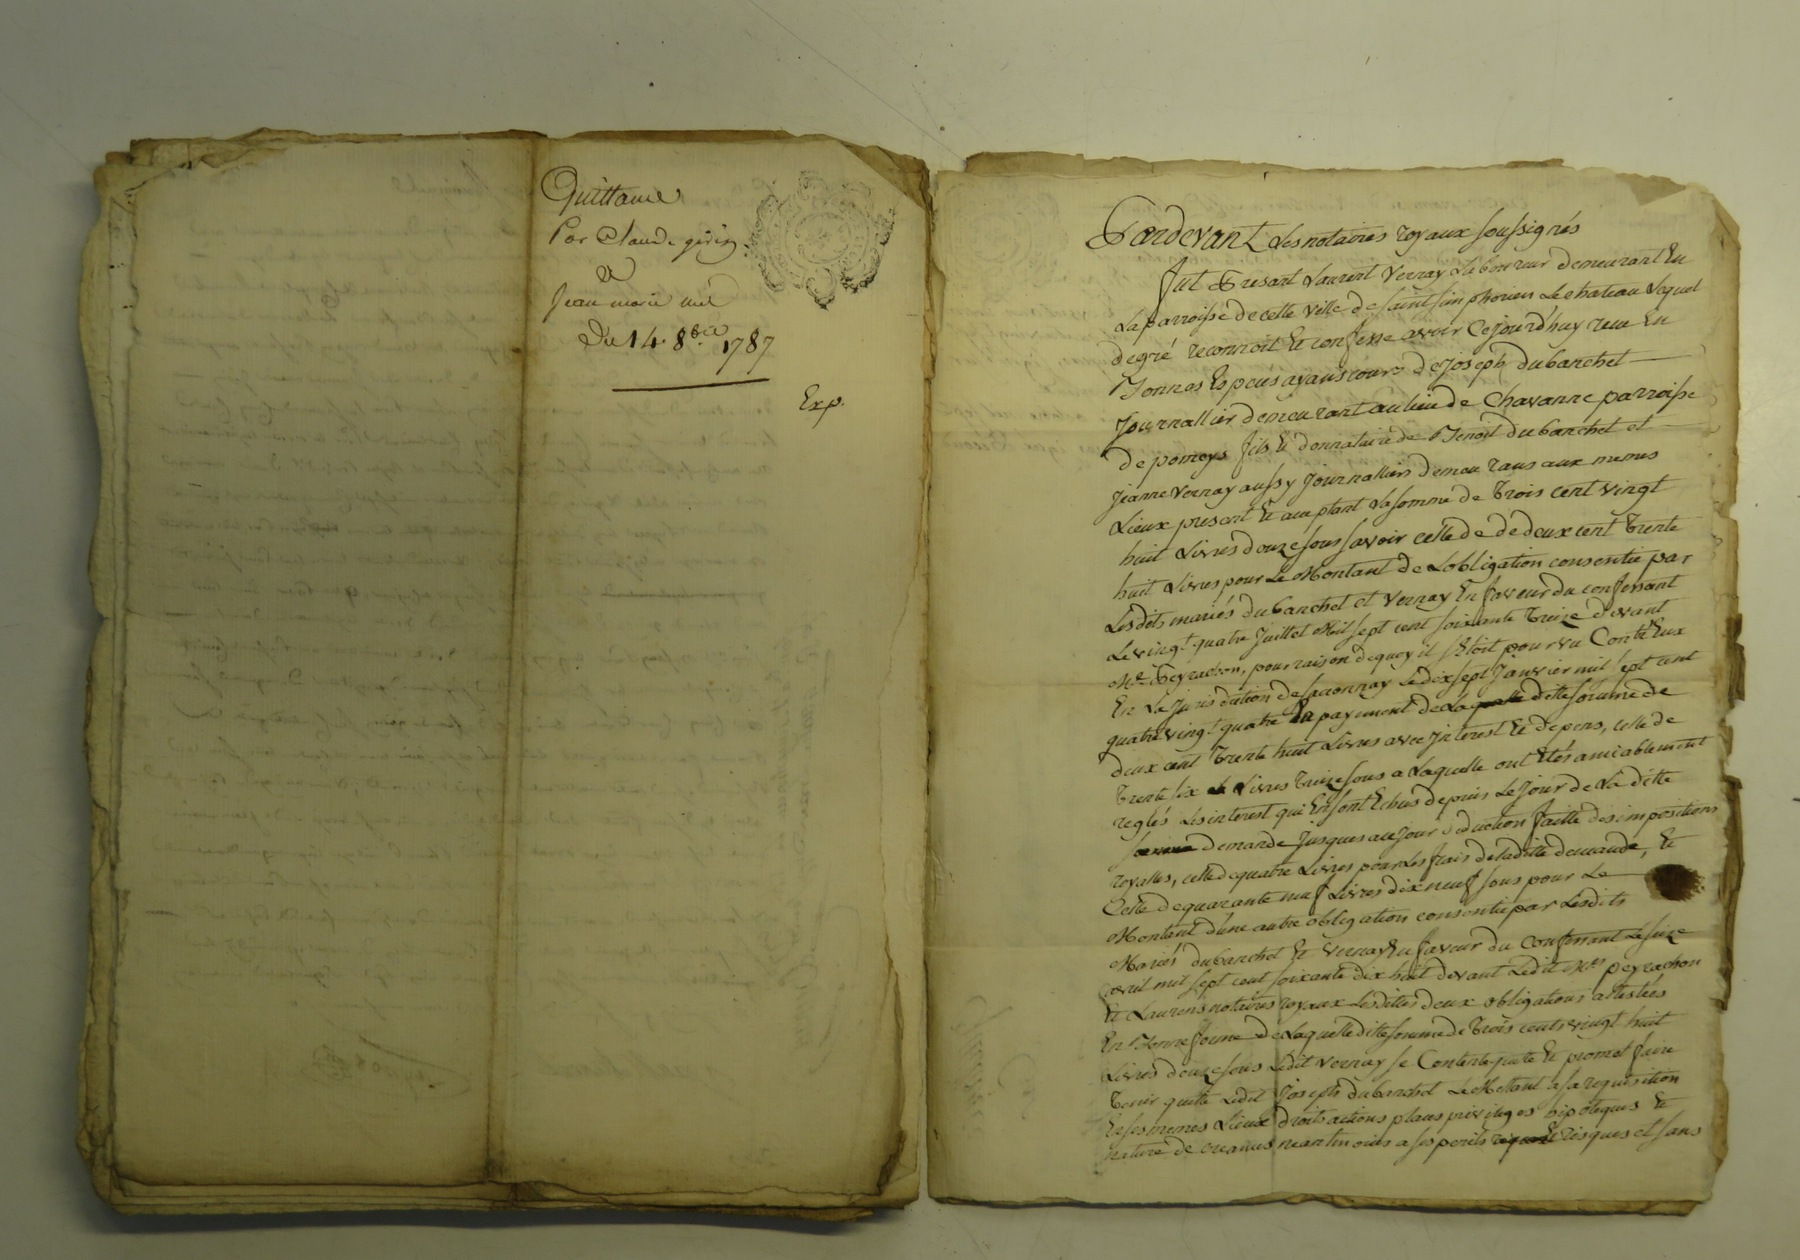 Quittance
Par Claude girin
a
Jean marie
Du 14. 8bre 1787
Exp.
Pardevant Les notaires royaux soussignés
fut Present Laurent Vernay Laboureur demeurant En
La parroisse de cette ville de saint simphorien Le chateau Lequel
degré reconnoit Et confesse avoir Cejourd'huy reçu En
Bonnes Especes ayans cours de Joseph dubanchet
Journallier demeurant au lieu de Chavanne parroisse
de pomeys fils Et donnataire de Benoit dubanchet et
Jeanne Vernay aussy Journalliers demeurans aux memes
Lieux present Et acceptant La somme de Trois cent vingt
huit Livres douze sous savoir celle de de deux cent Trente
huit Livres pour Le Montant de Lobligation consentie par
Lesdits mariés dubanchet et Vernay En faveur du confessant
Le vingt quatre Juillet Mil sept cent soixante Treize devant
Me Peyrachon, pour raison dequoy il s'Etoit pourvu Contr'Eux
En La Jurisdiction de saconnay Le dix sept Janvier mil sept cent
quatre vingt quatre En payement de La ditte somme de
deux cent Trente huit Livres avec Interest Et depens, celle de
Trente six Livres Treize sous a Laquelle ont Etés amiablement
reglés Les interest qui En sont Echus depuis Le Jour de La ditte
demande Jusques au jour deduction faitte des impositions
royalles, celle de quatre Livres pour Les frais de laditte demande, Et
Celle de quarante neuf Livres dix neuf sous pour Le
Montant d'une autre obligation consentie par Lesdits
Mariés dubanchet Et Vernay En faveur du Confessant Le seize
avril mil sept cent soixante dix huit devant Ledit Me peyrachon
Et Laurens notaires royaux Lesdittes deux obligations attestées
En Bonne forme de Laquelle ditte somme de Trois cents vingt huit
Livres douze sous Ledit Vernay se Contente quitte Et promet faire
Tenir quitte Ledit Joseph dubanchet Le Mettant a sa requisition
En ses memes Lieux droits actions places privileges hipoteques Et
nature de creances neantmoins a ses perils risques et sans